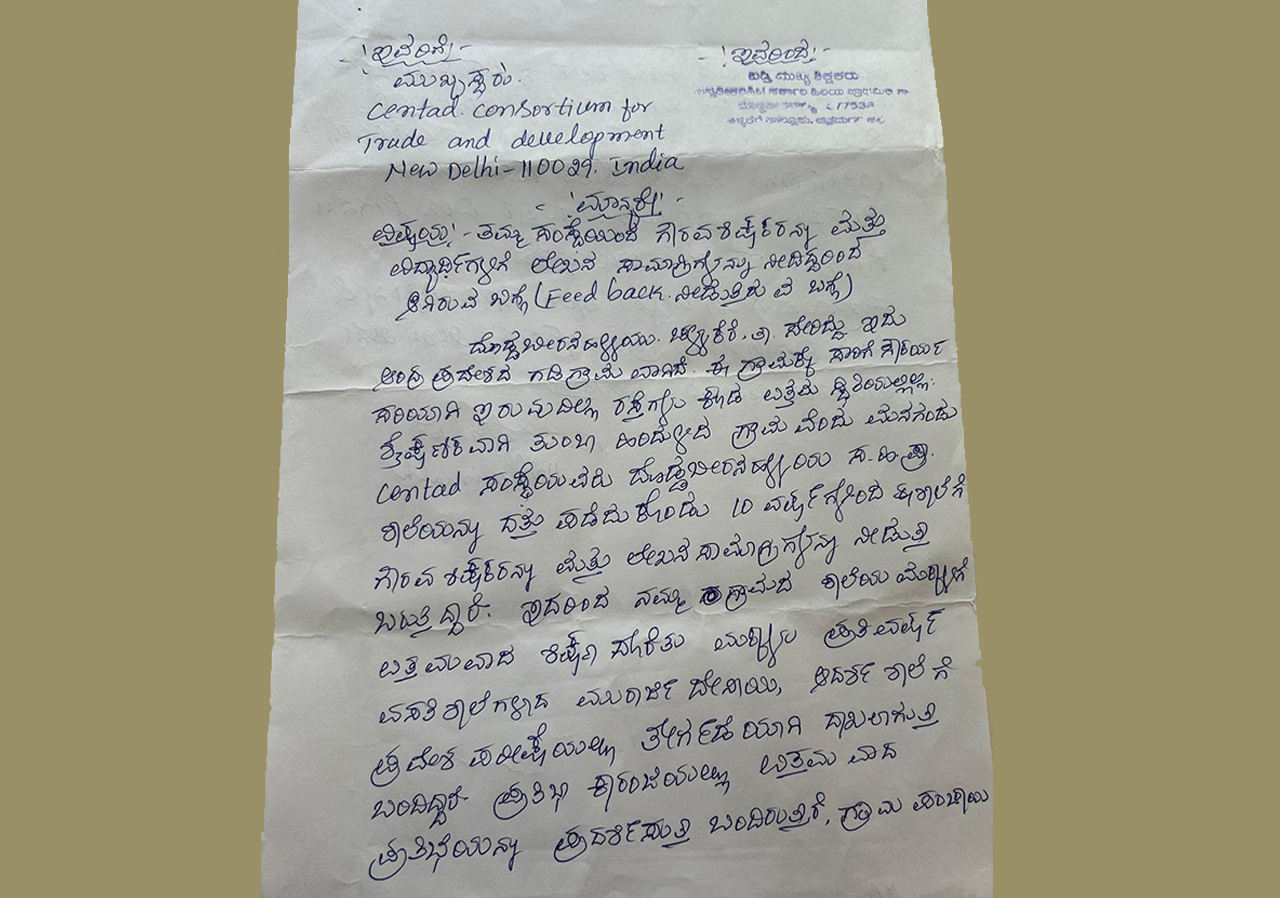 'ಇವರಿಗೆ,'
'ಇವರಿಂದ'
ಮುಖ್ಯಸ್ಥರು.
ಮುಖ್ಯ ಶಿಕ್ಷಕರು
Centad. Consortium for
Trade and development
New Delhi-110029. India
- 'ಮಾನ್ಯರೇ' -
ವಿಷಯ:- ತಮ್ಮ ಸಂಸ್ಥೆಯಿಂದ ಗೌರವ ಶಿಕ್ಷಕರನ್ನು ಮತ್ತು
ವಿದ್ಯಾರ್ಥಿಗಳಿಗೆ ಲೇಖನ ಸಾಮಾಗ್ರಿಗಳನ್ನು ನೀಡಿದ್ದರಿಂದ
ಆಗಿರುವ ಬಗ್ಗೆ (Feed back. ನೀಡುತ್ತಿರುವ ಬಗ್ಗೆ)
ದೊಡ್ಡಬೀರನಹಳ್ಳಿಯು. ಚಳ್ಳಕೆರೆ. ತಾ. ಸೇರಿದ್ದು ಇದು
ಆಂಧ್ರ ಪ್ರದೇಶದ ಗಡಿಗ್ರಾಮವಾಗಿದೆ. ಈ ಗ್ರಾಮಕ್ಕೆ ಸಾರಿಗೆ ಸೌಕರ್ಯ
ಸರಿಯಾಗಿ ಇರುವುದಿಲ್ಲ ರಸ್ತೆಗಳು ಕೂಡ ಉತ್ತಮ ಸ್ಥಿತಿಯಲ್ಲಿಲ್ಲ.
ಶೈಕ್ಷಣಿಕವಾಗಿ ತುಂಬಾ ಹಿಂದುಳಿದ ಗ್ರಾಮವೆಂದು ಮನಗಂಡು
Centad ಸಂಸ್ಥೆಯವರು ದೊಡ್ಡಬೀರನಹಳ್ಳಿಯ ಸ.ಹಿ.ಪ್ರಾ.
ಶಾಲೆಯನ್ನು ದತ್ತು ಪಡೆದುಕೊಂಡು 10 ವರ್ಷಗಳಿಂದ ಈ ಶಾಲೆಗೆ
ಗೌರವ ಶಿಕ್ಷಕರನ್ನು ಮತ್ತು ಲೇಖನ ಸಾಮಾಗ್ರಿಗಳನ್ನು ನೀಡುತ್ತಾ
ಬರುತ್ತಿದ್ದಾರೆ. ಇದರಿಂದ ನಮ್ಮ ಗ್ರಾಮದ ಶಾಲೆಯ ಮಕ್ಕಳಿಗೆ
ಉತ್ತಮವಾದ ಶಿಕ್ಷಣ ದೊರೆತು ಮಕ್ಕಳು ಪ್ರತಿವರ್ಷ
ವಸತಿ ಶಾಲೆಗಳಾದ ಮುರಾರ್ಜಿ ದೇಸಾಯಿ, ಆದರ್ಶ ಶಾಲೆಗೆ
ಪ್ರವೇಶ ಪರೀಕ್ಷೆಯಲ್ಲಿ ತೇರ್ಗಡೆಯಾಗಿ ದಾಖಲಾಗುತ್ತಾ
ಬಂದಿದ್ದಾರೆ ಪ್ರತಿಭಾ ಕಾರಂಜಿಯಲ್ಲಿ ಉತ್ತಮವಾದ
ಪ್ರತಿಭೆಯನ್ನು ಪ್ರದರ್ಶಿಸುತ್ತಾ ಬಂದಿರುತ್ತಾರೆ, ಗ್ರಾಮ ಪಂಚಾಯಿ